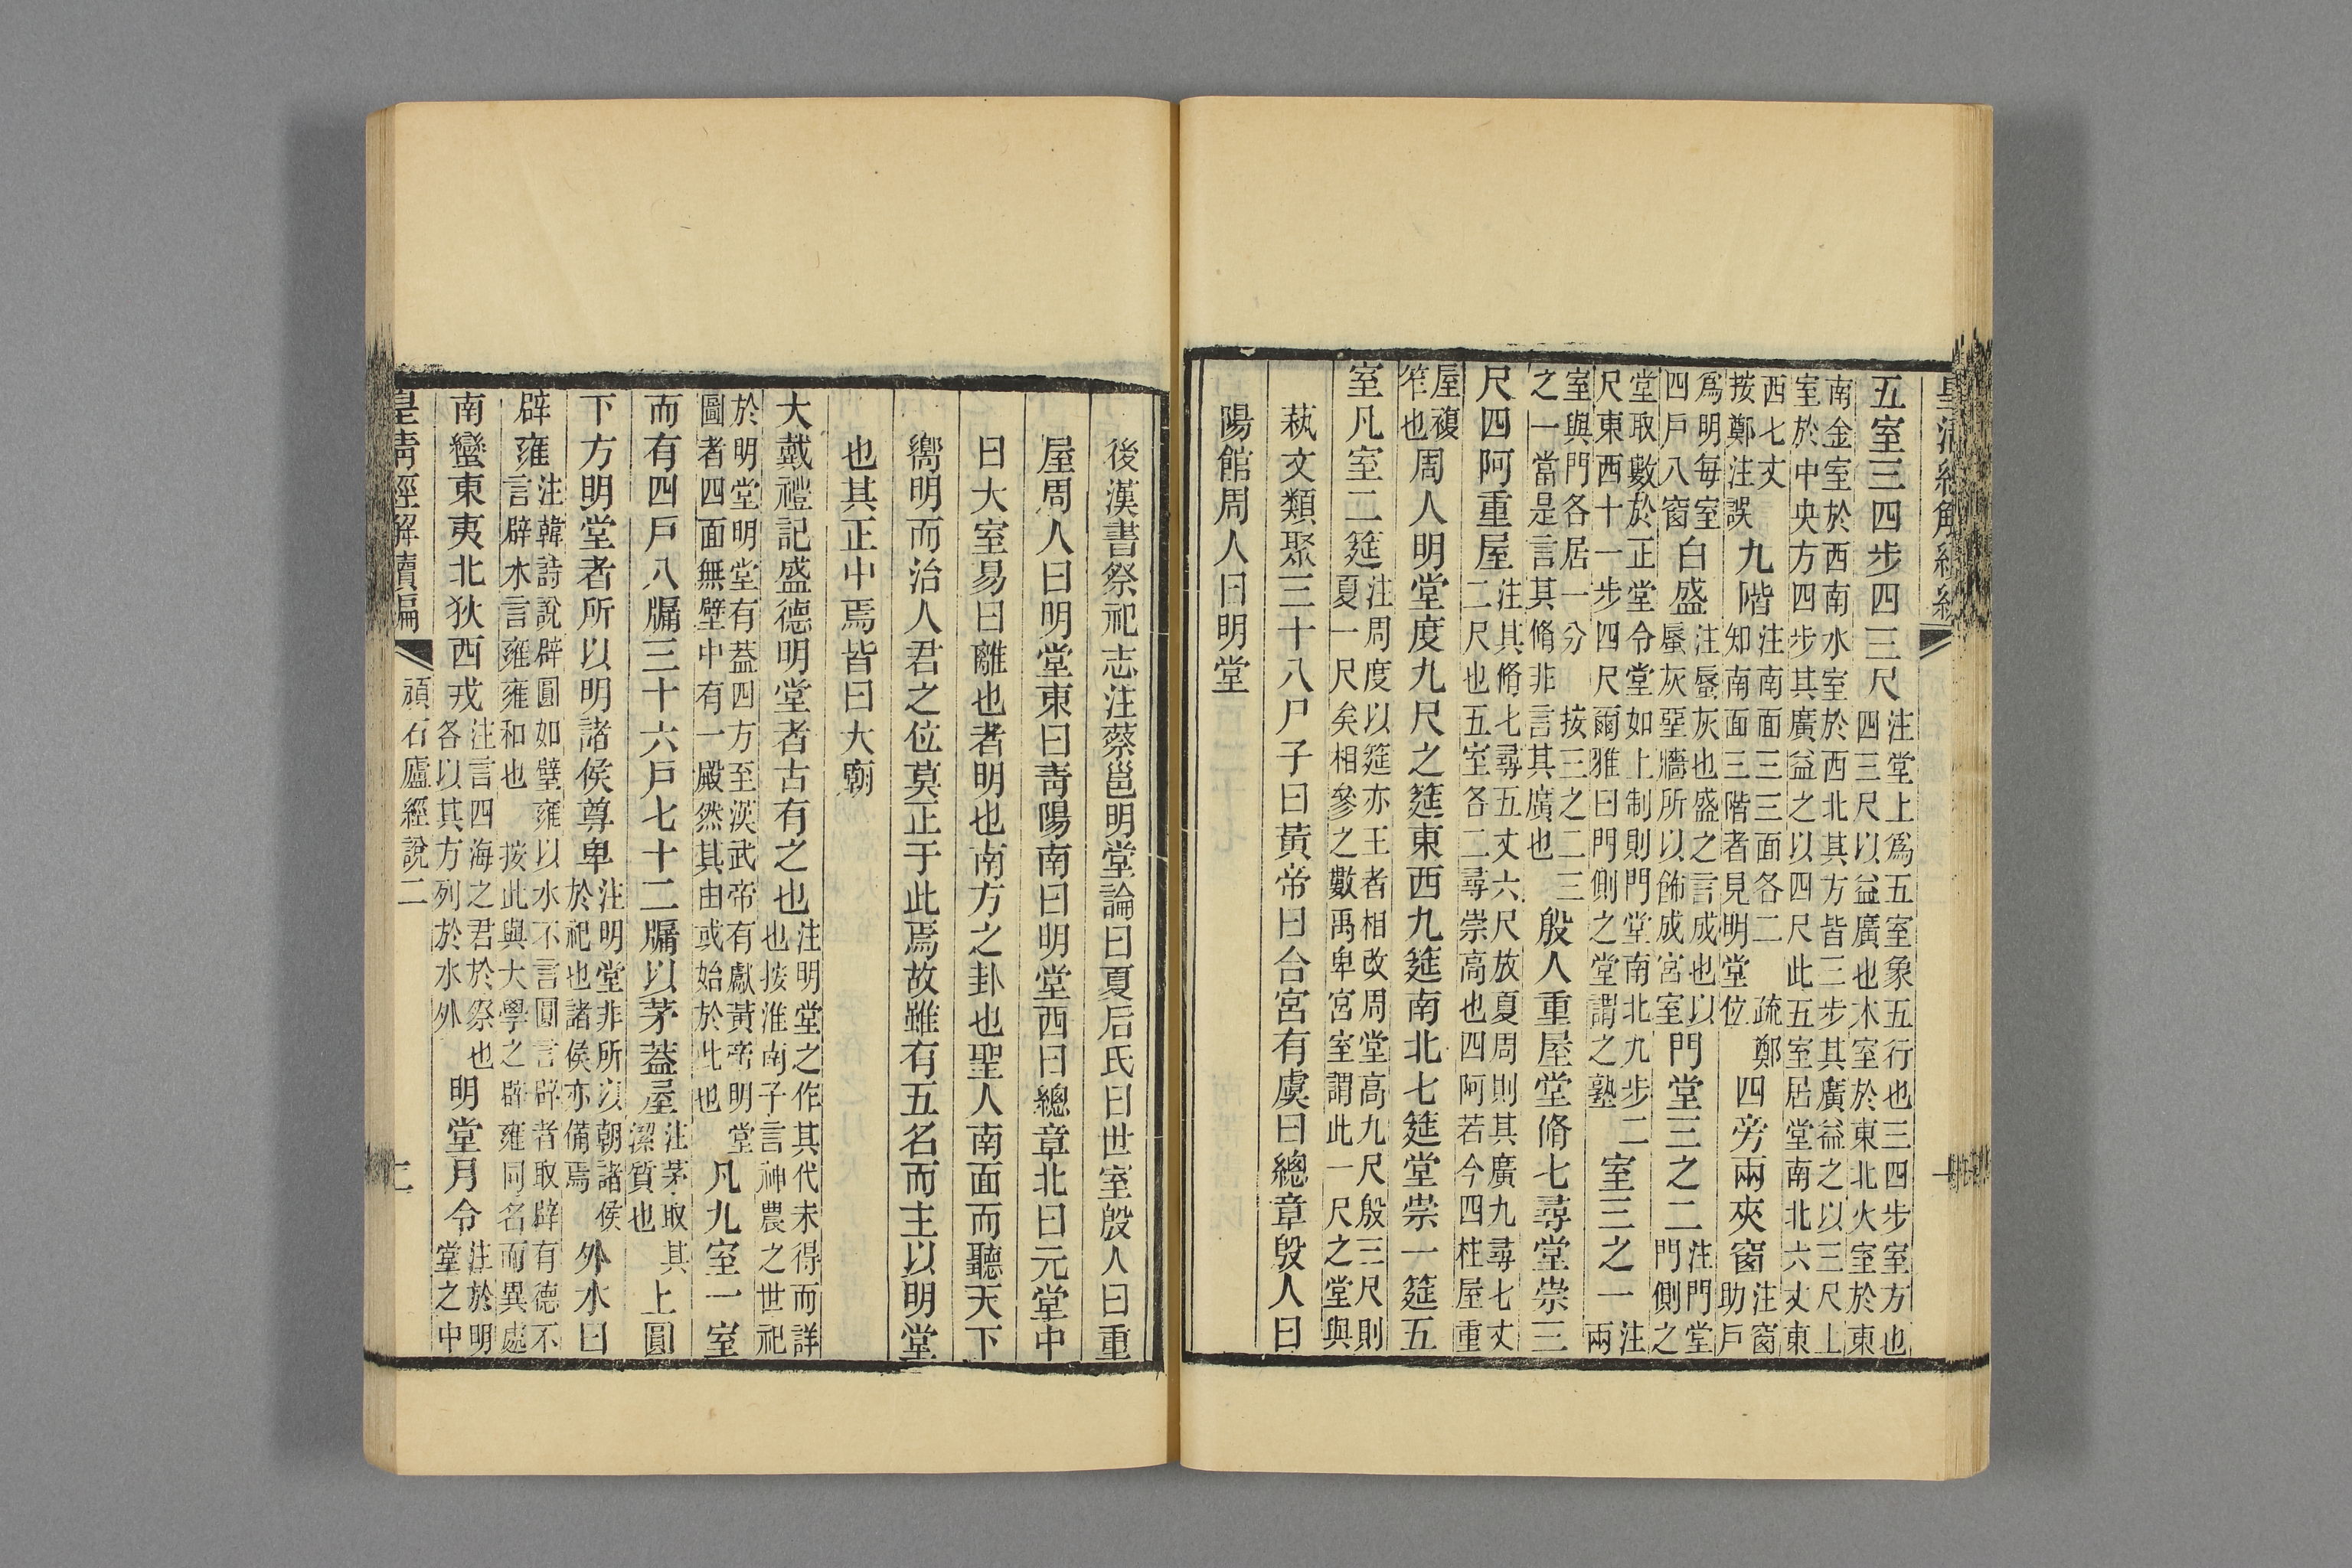 五室三四步四三尺注堂上爲五室象五行也三四步室方也四三尺以益廣也木室於東北火室於東
南金室於西南水室於西北其方皆三步其廣益之以三尺土室於中央方四步其廣益之以四尺此五室居堂南北六丈東
西七丈按鄭注誤九階注南面三三面各二疏鄭知南面三階者見明堂位四旁兩夾窗注窗助戶
爲明每室四戶八窗白盛注蜃灰也盛之言成也以蜃灰堊牆所以飾成宮室門堂三之二注門堂門側之
堂取數於正堂令堂如上制則門堂南北九步二尺東西十一步四尺爾雅曰門側之堂謂之塾室三之一注兩
室與門各居一分按三之二三之一當是言其脩非言其廣也殷人重屋堂脩七尋堂崇三
尺四阿重屋注其脩七尋五丈六尺放夏周則其廣九尋七丈二尺也五室各二尋崇高也四阿若今四柱屋重
屋複笮也周人明堂度九尺之筵東西九筵南北七筵堂崇一筵五
室凡室二筵注周度以筵亦王者相改周堂高九尺殷三尺則夏一尺矣相參之數禹卑宮室謂此一尺之堂與
蓺文類聚三十八尸子曰黃帝曰合宮有虞曰總章殷人曰
陽館周人曰明堂
後漢書祭祀志注蔡邕明堂論曰夏后氏曰世室殷人曰重
屋周人曰明堂東曰靑陽南曰明堂西曰總章北曰元堂中
曰大室易曰離也者明也南方之卦也聖人南面而聽天下
嚮明而治人君之位莫正于此焉故雖有五名而主以明堂
也其正中焉皆曰大廟
大戴禮記盛德明堂者古有之也注明堂之作其代未得而詳也按淮南子言神農之世祀
於明堂明堂有蓋四方至漢武帝有獻黃帝明堂圖者四面無壁中有一殿然其由或始於此也凡九室一室
而有四戶八牖三十六戶七十二牖以茅蓋屋注茅取其潔質也上圓
下方明堂者所以明諸侯尊卑注明堂非所以朝諸侯於祀也諸侯亦備焉外水曰
辟雍注韓詩說辟圓如璧雍以水不言圓言辟者取辟有德不言辟水言雍雍和也按此與大學之辟雍同名而異處
南蠻東夷北狄西戎注言四海之君於祭也各以其方列於水外明堂月令注於明堂之中
皇淸經解續編 頑石廬經說二